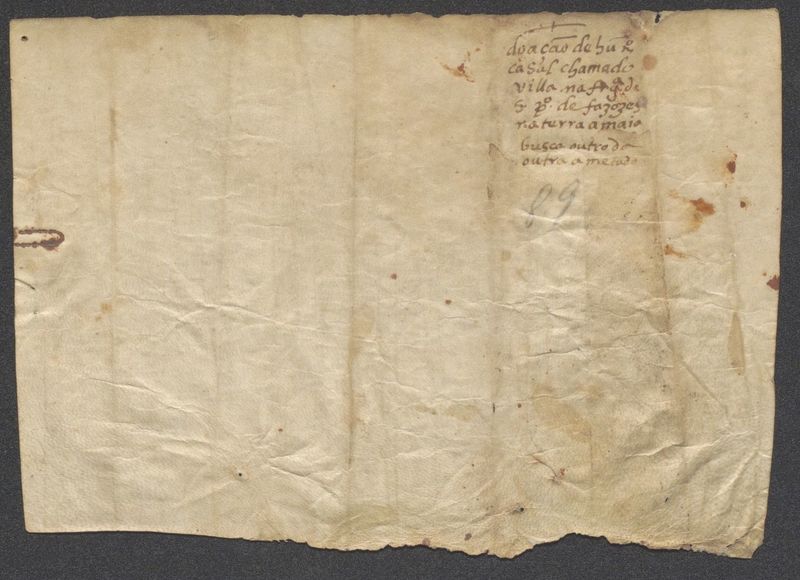 doacaõ de hũ
casal chamado
villa na frg. de
S. pº. de fajozes
na terra a maia
busca outro da
outra a metade
89